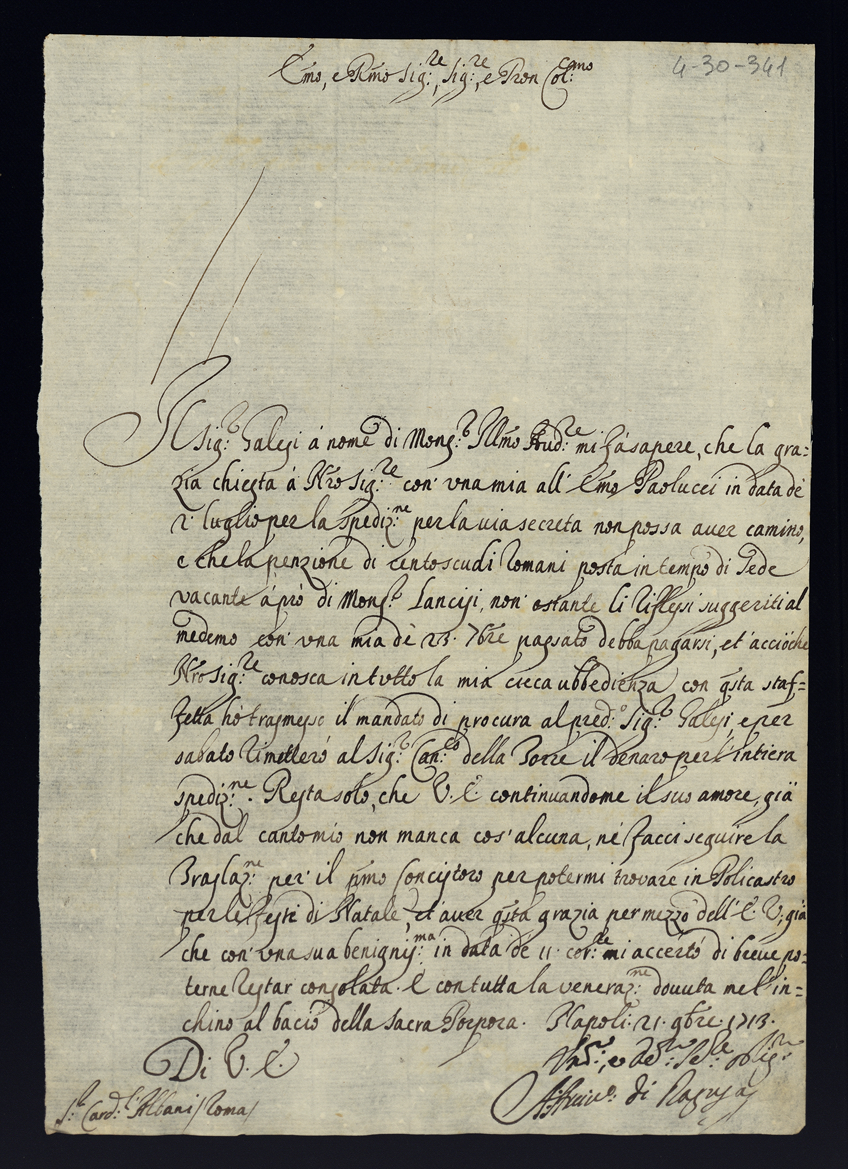 Emo, e Rmo Sig:re, Sig:re, e Pron Col:mo
4-30-341
Il Sig:r Galesi à nome di Mong:r Illmo Aud:re mi fà sapere, che la gra=
zia chiesta à Nro Sig:re con' una mia all' Emo Paolucci in data de
2. luglio per la spediz:ne per la via secreta non possa aver camino,
e che la penzione di cento scudi Romani posta in tempo di Sede
vacante à prò di Mons:r Lancisi, non' ostante li riflessi suggeriti al
medemo con' una mia de 23. 7bre passato debba pagarsi, et' acciòche
Nro Sig:re conosca in tutto la mia cieca ubbedienza, con qsta staf=
fetta hò trasmesso il mandato di procura al pred:o Sig:r Galesi, e per
sabato rimetterò al Sig:r Can:co della Torre il denaro per l'intiera
spediz:ne. Resta solo, che V. E. continuandome il suo amore, già
che dal canto mio non manca cos' alcuna, ne facci seguire la
Traslaz:ne per' il pmo Concistoro per potermi trovare in Policastro
per le feste di Natale, et' aver qsta grazia per mezzo dell' E. V. già
che con' una sua benignis:ma in data de 11. cor:te mi accertò di breve po=
terne restar consolata. E con tutta la veneraz:ne dovuta me l' in=
chino al bacio della Sacra Porpora. Napoli. 21. 9bre. 1713.
Di V. E.
di Ragusa
S:r Card:l Albani /Roma/